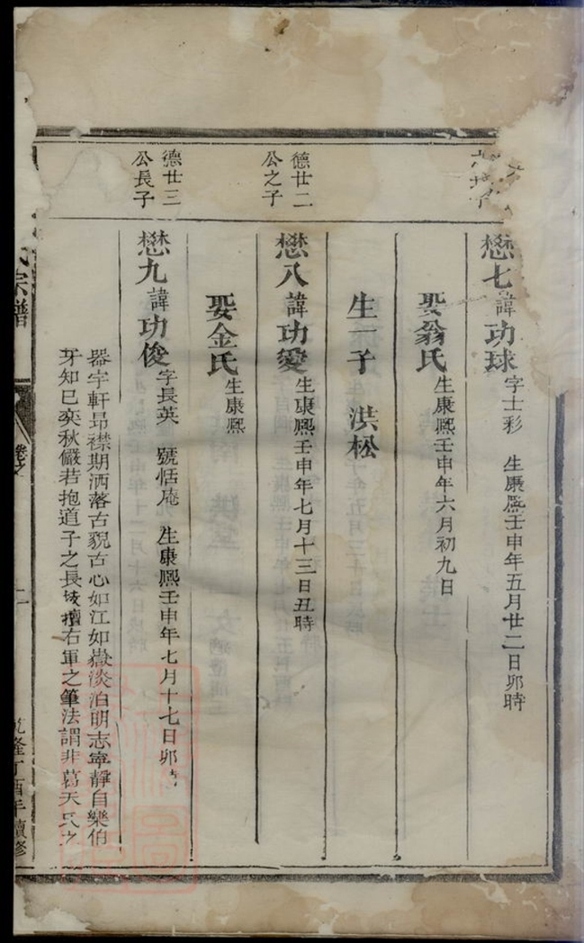 懋七諱功球字士彩 生康熙壬申年五月廿二日卯時
娶翁氏生康熙壬申年六月初九日
生一子 洪松
德廿二
公之子
懋八諱功變生康熙壬申年七月十三日丑時
娶金氏生康熙
德廿三
公長子
懋九諱功俊字長英 號恬庵 生康熙壬申年七月十七日卯時
器宇軒昂襟期洒落古貌古心如江如嶽淡泊明志寧靜自樂伯
牙知已奕秋儼若抱道子之長技擅右軍之筆法謂非葛天氏之
氏宗譜
卷之
二
乾隆丁酉年續修